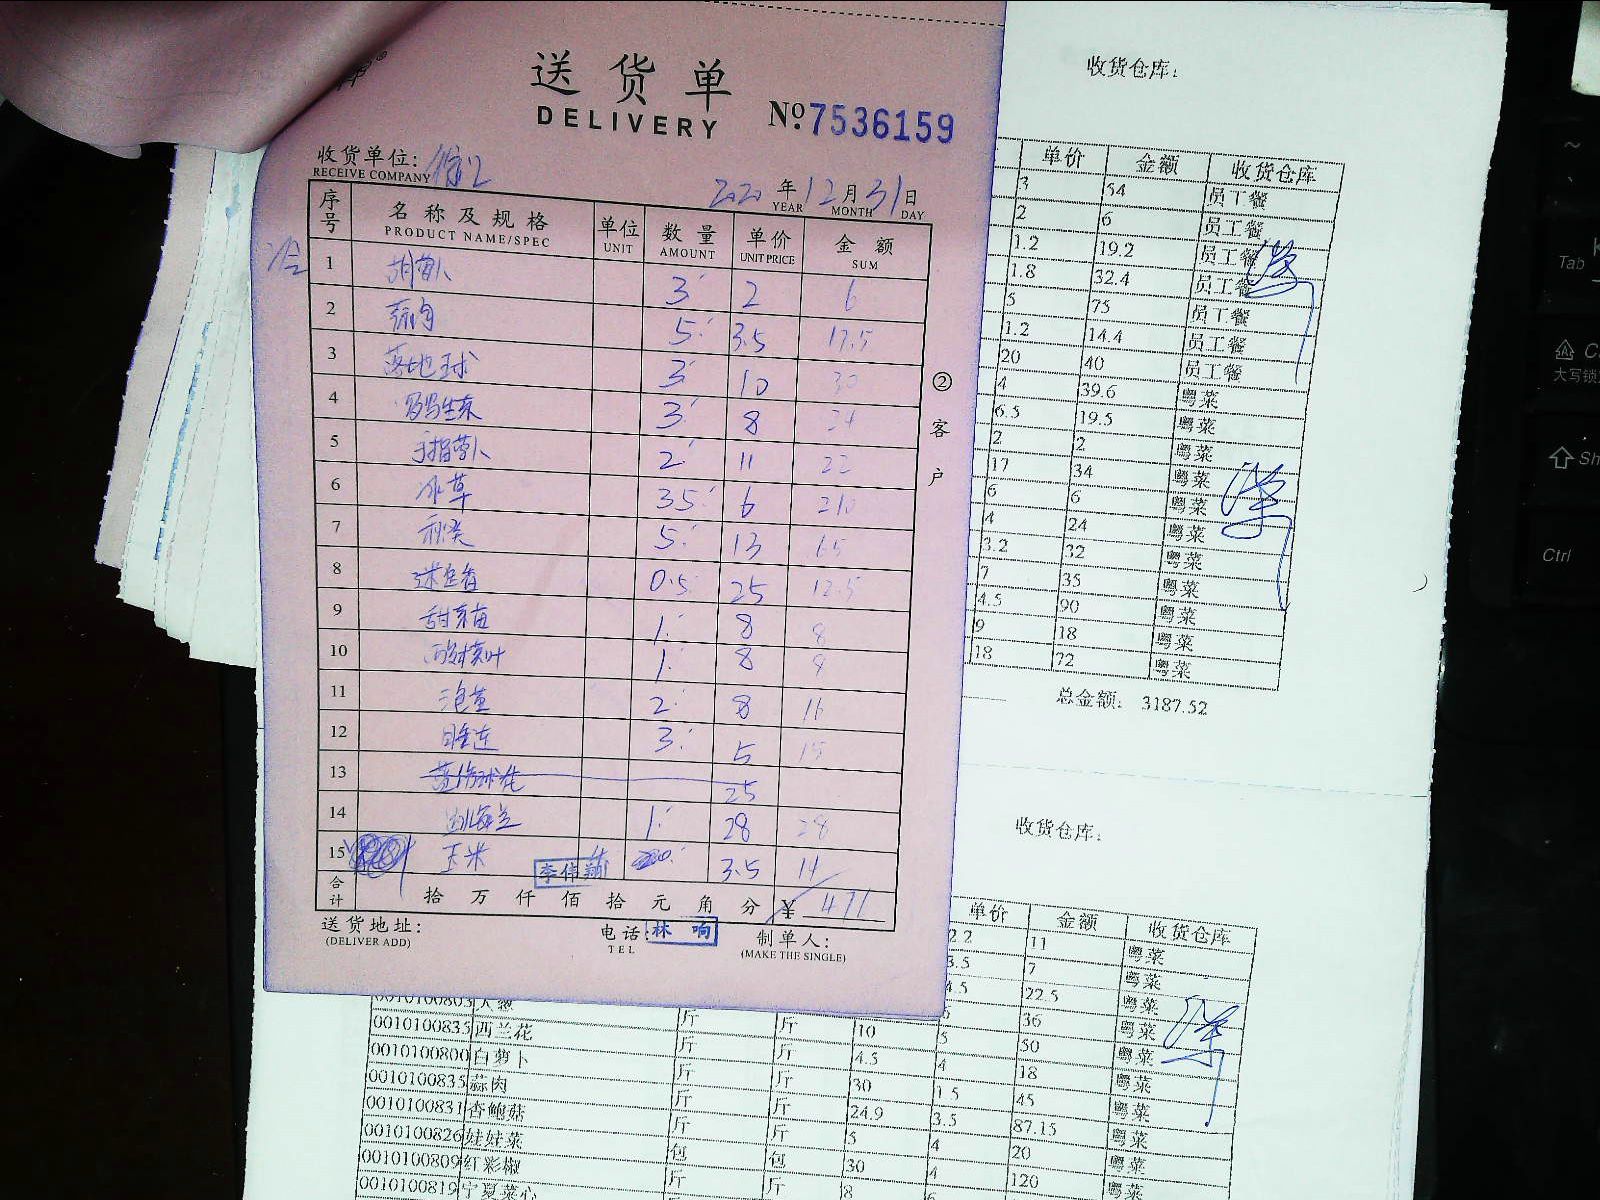 送货单
DELIVERY
No.7536159
收货单位:
RECEIVE COMPANY
2020年12月31日
YEAR MONTH DAY
序号 名称及规格 单位 数量 单价 金额
PRODUCT NAME/SPEC UNIT AMOUNT UNIT PRICE SUM
1 胡萝卜 3 2 6
2 5 3.5 17.5
3 落地球 3 10 30
4 罗马生菜 3 8 24
5 手指萝卜 2 11 22
6 冰草 35 6 210
7 秋葵 5 13 65
8 迷迭香 0.5 25 12.5
9 甜菜苗 1 8 8
10 1 8 8
11 2 8 16
12 3 5 15
13 25
14 1 28 28
15 玉米 3.5 14
李伟
合计 拾万仟佰拾元角分 ¥ 471
送货地址:
(DELIVER ADD)
电话:
TEL
林响
制单人:
(MAKE THE SINGLE)
②客户
收货仓库:
单价 金额 收货仓库
3 54 员工餐
2 6 员工餐
1.2 19.2 员工餐
1.8 32.4 员工餐
5 75 员工餐
1.2 14.4 员工餐
20 40 员工餐
4 39.6 粤菜
6.5 19.5 粤菜
2 2 粤菜
17 34 粤菜
6 6 粤菜
4 24 粤菜
3.2 32 粤菜
7 35 粤菜
4.5 90 粤菜
9 18 粤菜
18 72 粤菜
总金额: 3187.52
收货仓库:
单价 金额 收货仓库
2.2 11 粤菜
3.5 7 粤菜
4.5 22.5 粤菜
0010100803 大葱 斤 斤 6 36 粤菜
0010100835 西兰花 斤 斤 10 5 50 粤菜
0010100800 白萝卜 斤 斤 4.5 4 18 粤菜
0010100835 蒜肉 斤 斤 30 1.5 45 粤菜
0010100831 杏鲍菇 斤 斤 24.9 3.5 87.15 粤菜
0010100826 娃娃菜 包 包 5 4 20 粤菜
0010100809 红彩椒 斤 斤 30 4 120 粤菜
0010100819 宁夏菜心 斤 斤 8 6
Tab
大写锁
Sh
Ctrl